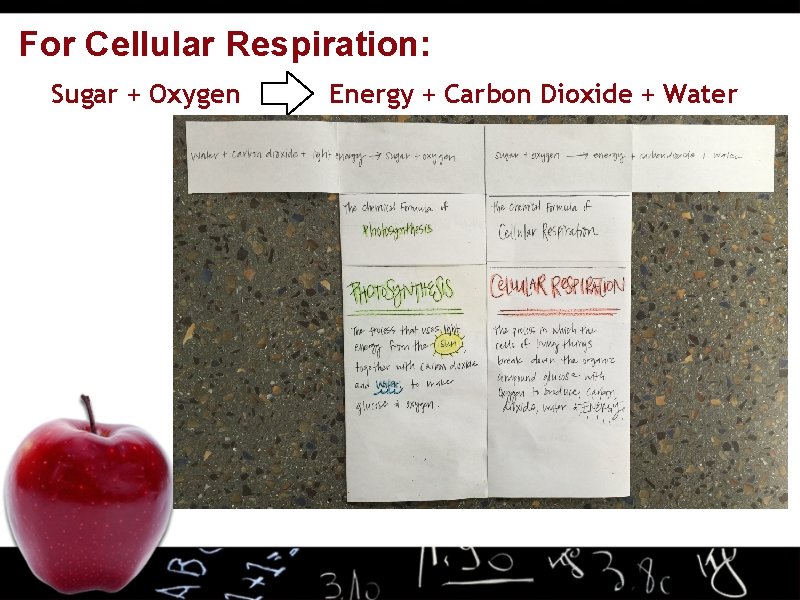 For Cellular Respiration:
Sugar + Oxygen Energy + Carbon Dioxide + Water
Water + Carbon dioxide + light energy → sugar + oxygen
sugar + oxygen → energy + carbondioxide + water
The Chemical Formula of
Photosynthesis
The Chemical Formula of
Cellular Respiration
PHOTOSYNTHESIS
The process that uses light
energy from the sun,
together with carbon dioxide
and water, to make
glucose & oxygen.
CELLULAR RESPIRATION
The process in which the
cells of living things
break down the organic
compound glucose with
Oxygen to produce, Carbon
dioxide, water & ENERGY.
ABC
1+1=
3.10
3.8c